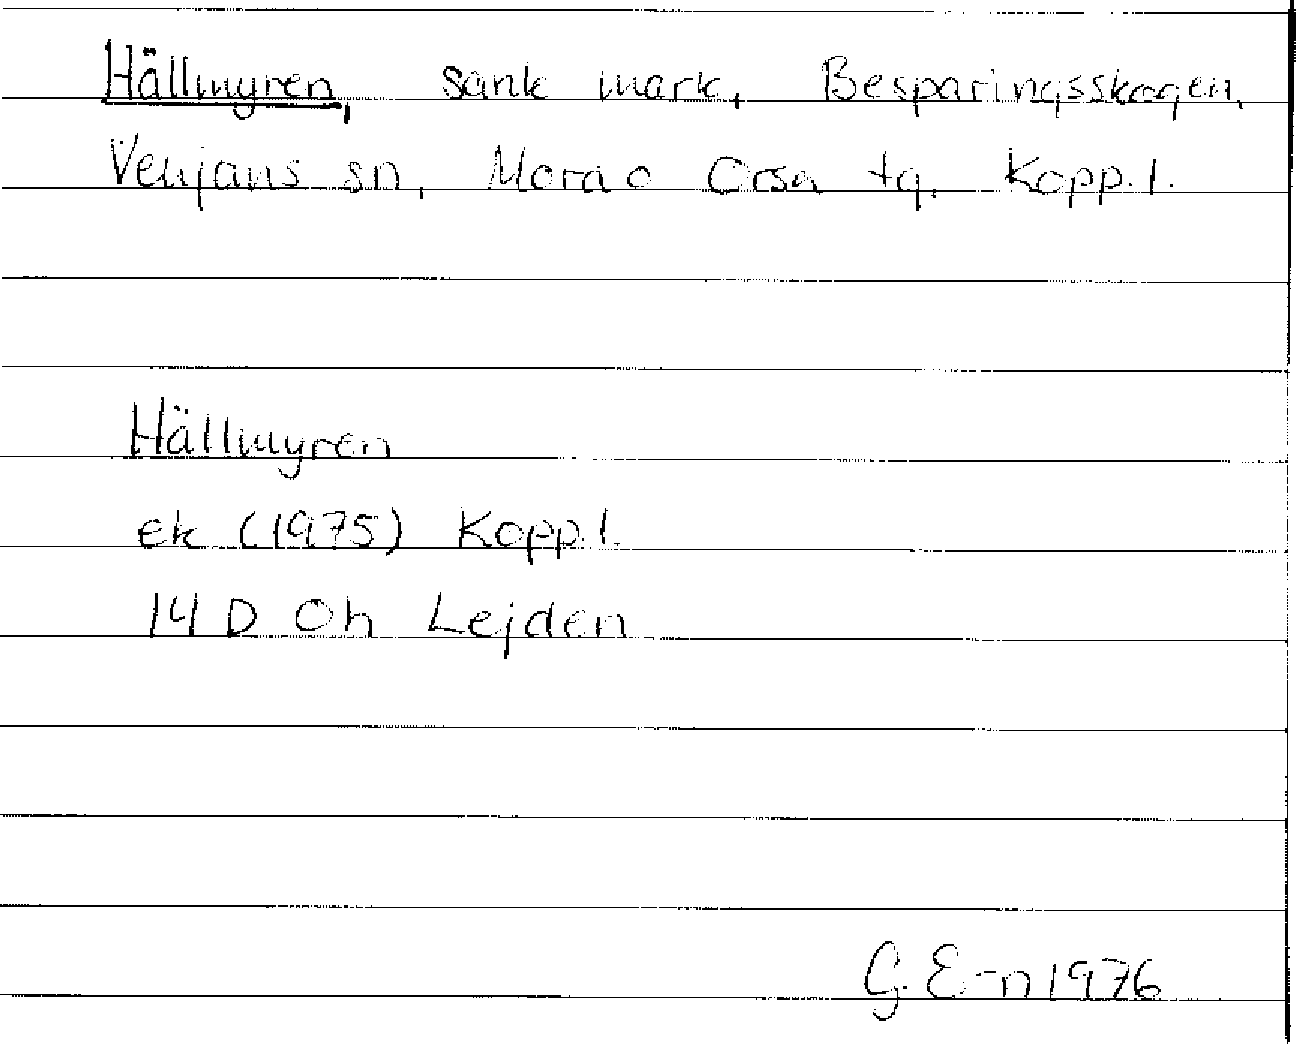 Hällmyren, sank mark, Besparingsskogen,
Venjans sn, Mora o Orsa tg. Kopp.l.
Hällmyren
ek (1975) Kopp.l.
14 D 0h Lejden
G. E-n 1976